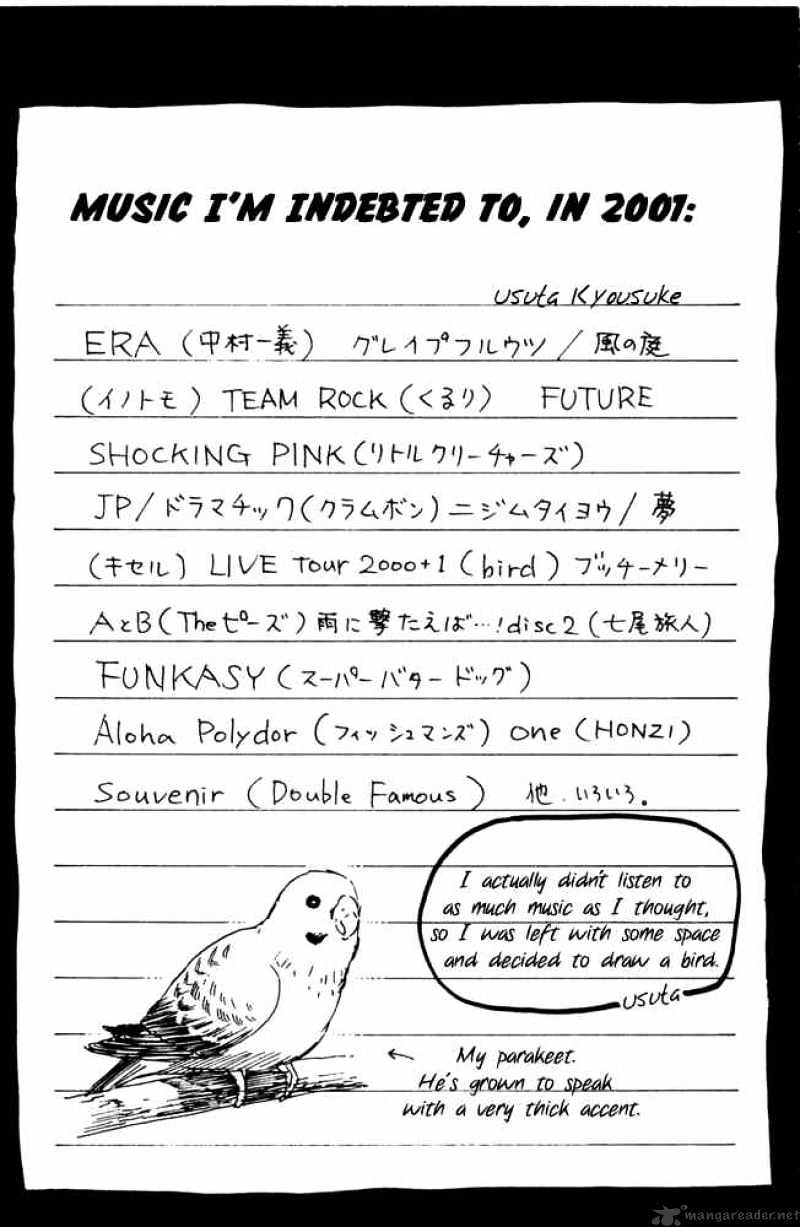 MUSIC I'M INDEBTED TO, IN 2001:
Usuta Kyousuke
ERA (中村一義) グレイプフルウツ / 風の庭
(イノトモ) TEAM ROCK (くるり) FUTURE
SHOCKING PINK (リトルクリーチャーズ)
JP/ドラマチック(クラムボン) ニジムタイヨウ / 夢
(キセル) LIVE Tour 2000+1 (bird) ブッチーメリー
AとB(Theピーズ) 雨に撃たえば…!disc2 (七尾旅人)
FUNKASY (スーパーバタードッグ)
Aloha Polydor (フィッシュマンズ) One (HONZI)
Souvenir (Double Famous) 他.いろいろ。
I actually didn't listen to
as much music as I thought,
so I was left with some space
and decided to draw a bird.
usuta
← My parakeet.
He's grown to speak
with a very thick accent.
mangareader.net